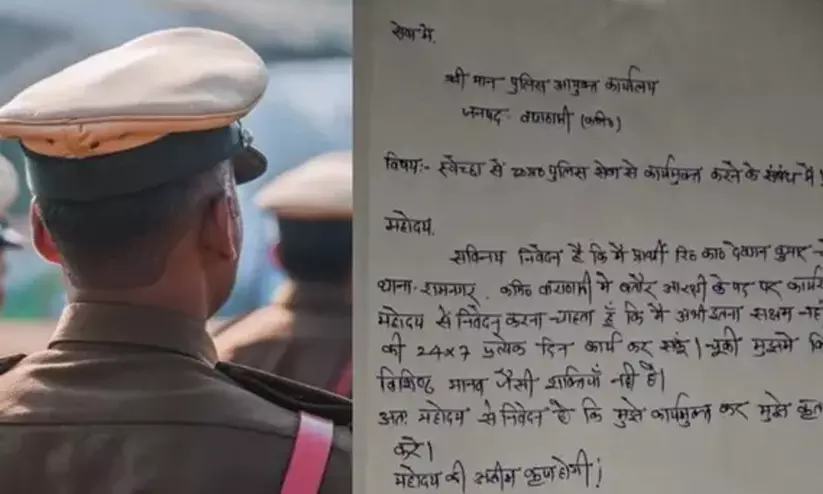 सेवा में,
श्री मान पुलिस आयुक्त कार्यालय
जनपद- वाराणसी (कमि०)
विषय:- स्वेच्छा से उ०प्र० पुलिस सेवा से कार्यमुक्त करने के संबंध में।
महोदय,
सविनय निवेदन है कि मै प्रार्थी रि० का० देवान कुमार
थाना- रामनगर, कमि० वाराणसी मे बतौर आरक्षी के पद पर
महोदय से निवेदन करना चाहता हूँ कि मै अभी इतना सक्षम
की 24x7 प्रत्येक दिन कार्य कर सकूं। चूकी मुझमे
विशिष्ट मानव जैसी शक्तियाँ नही है।
अतः महोदय से निवेदन है कि मुझे कार्यमुक्त कर मुझे
करे।
महोदय की असीम कृपा होगी!